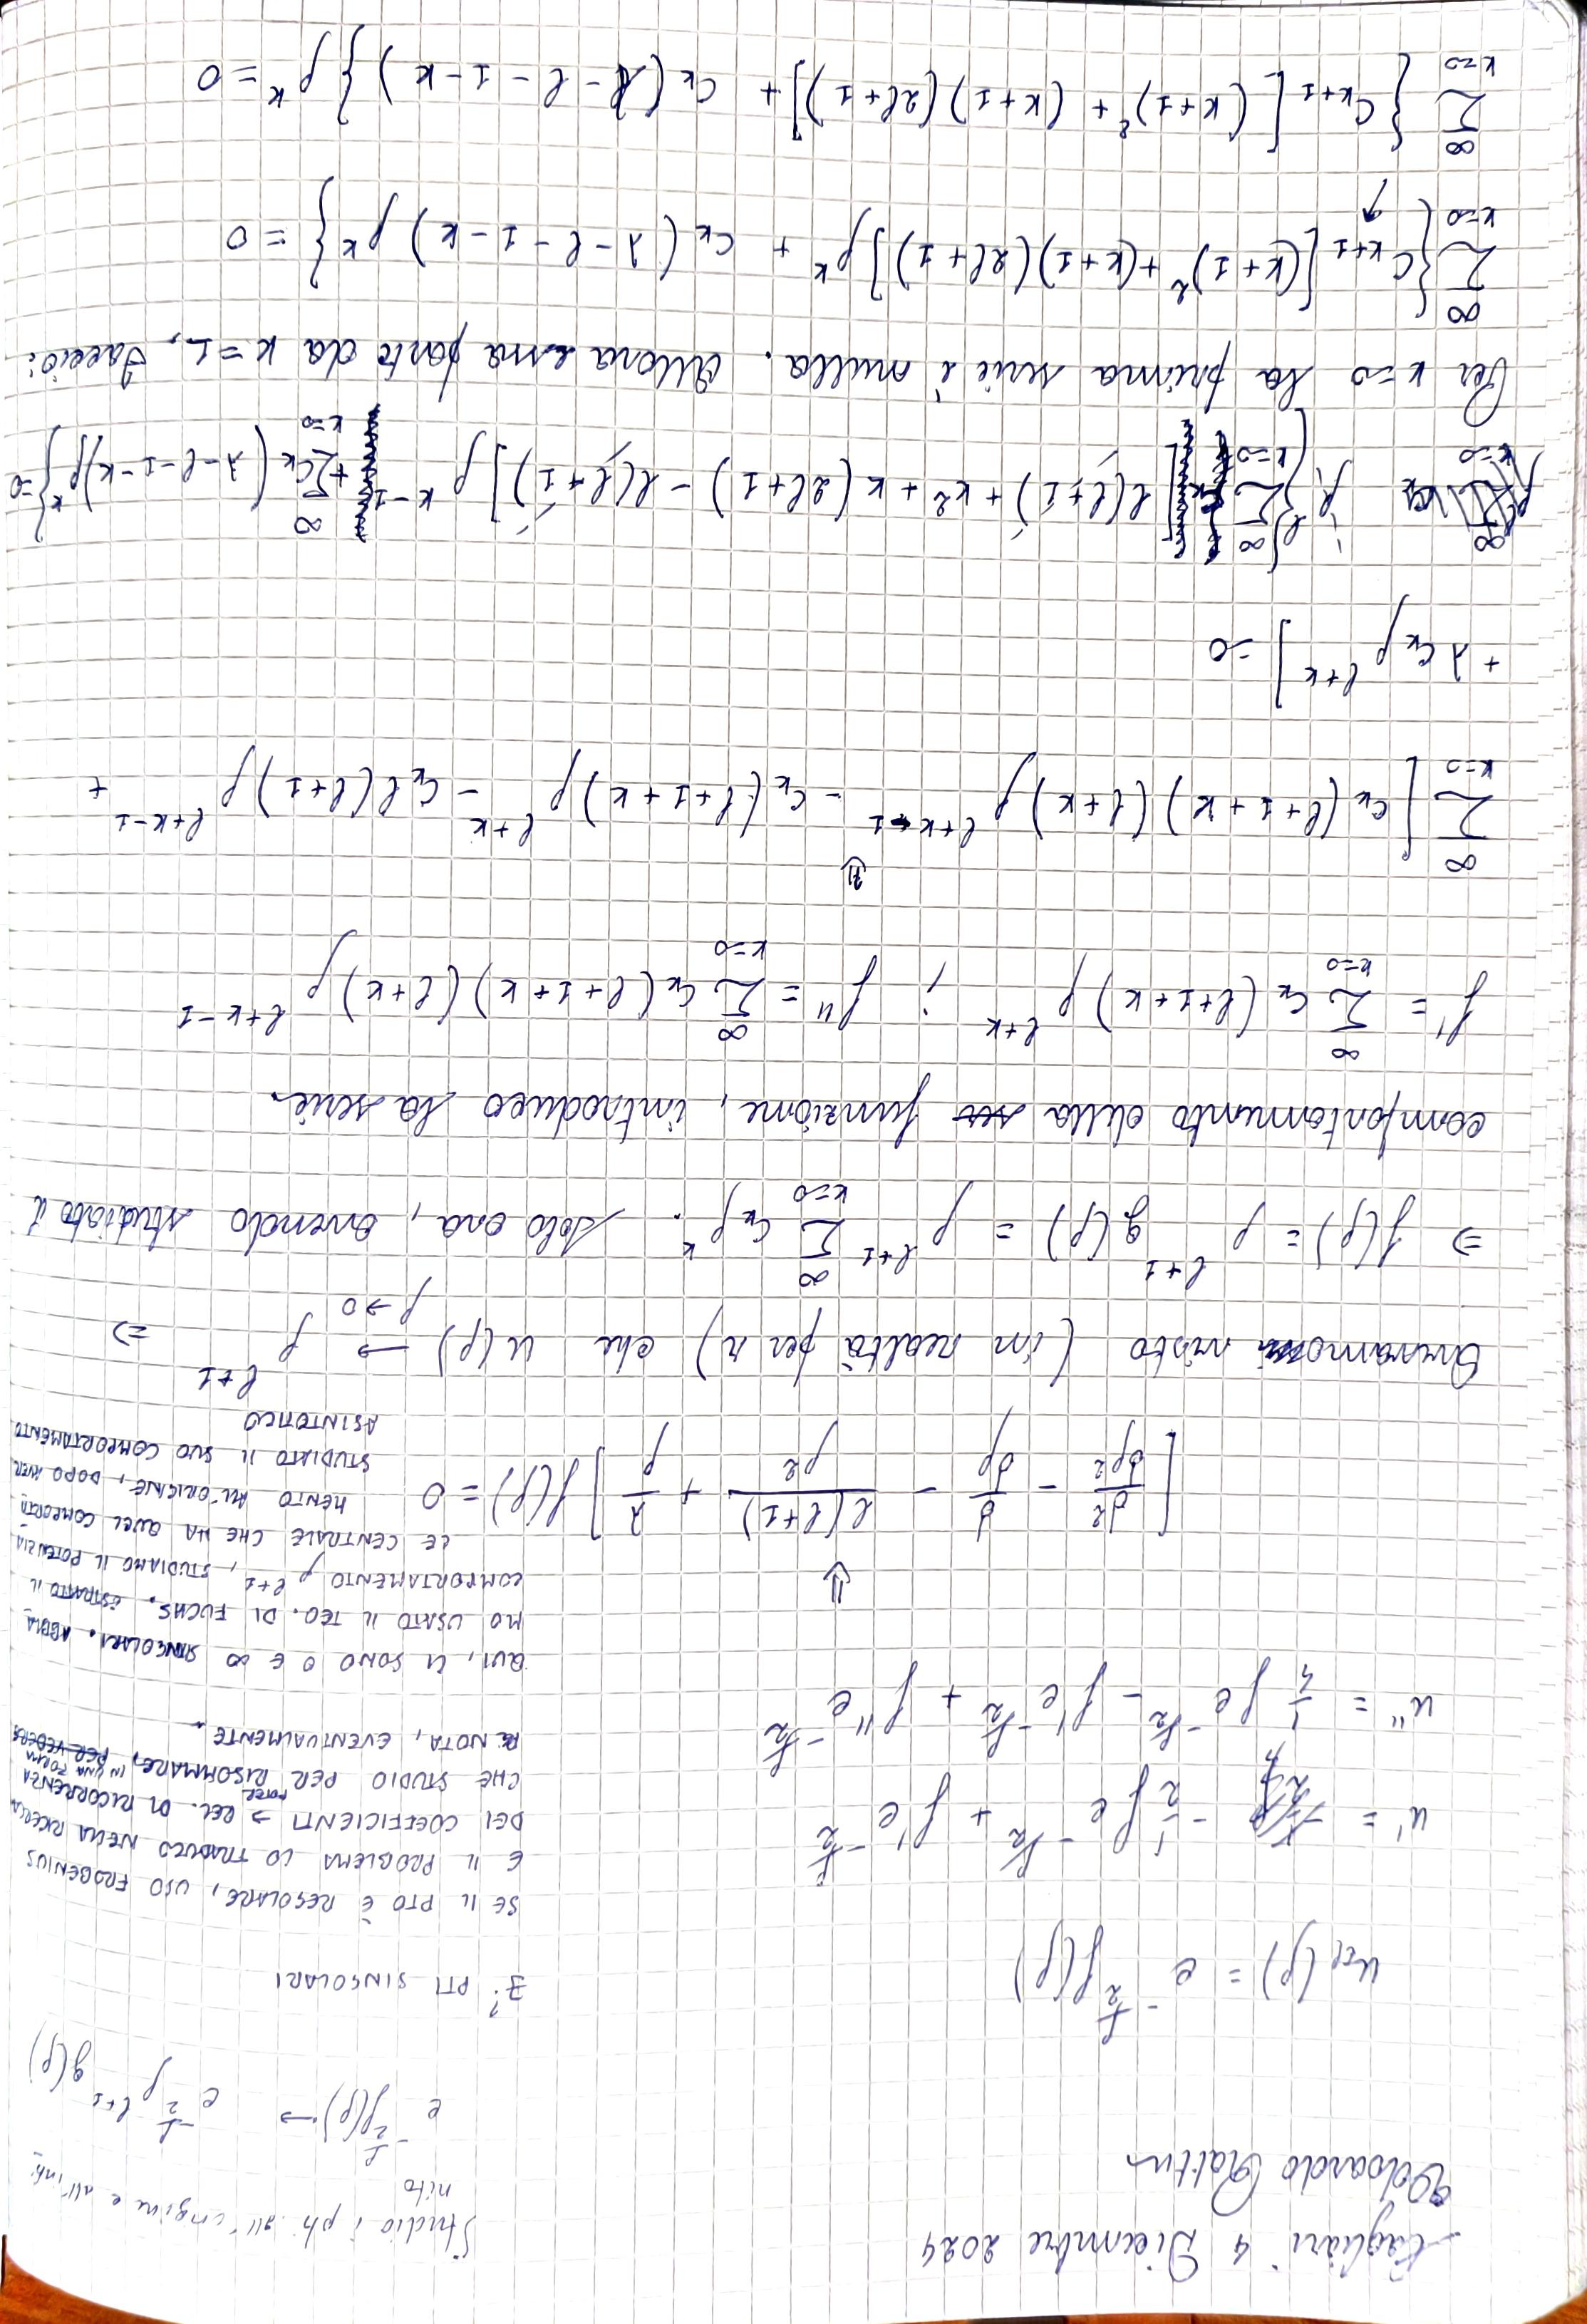 Cagliari 4 Dicembre 2024
Edoardo
Studio i pti all'origine e all'infi-
nito
e^{-ρ/2} f(ρ) → e^{-ρ/2} ρ^{l+1} g(ρ)
u_{εl}(ρ) = e^{-ρ/2} f(ρ)
∃? PTI SINGOLARI
SE IL PTO È REGOLARE, USO FROBENIUS
E IL PROBLEMA LO TRADUCO NELLA RICERCA
DEI COEFFICIENTI → REL. DI RICORRENZA
CHE STUDIO PER POTER RISOMMARE, IN UNA FORMA
NOTA, EVENTUALMENTE.
u' = -1/2 f e^{-ρ/2} + f' e^{-ρ/2}
u'' = 1/4 f e^{-ρ/2} - f' e^{-ρ/2} + f'' e^{-ρ/2}
QUI, CI SONO 0 E ∞ SINGOLARI. ABBIA
MO USATO IL TEO. DI FUCHS. ESTRATTO IL
COMPORTAMENTO ρ^{l+1}, STUDIAMO IL POTENZIA
LE CENTRALE CHE HA QUEL COMPORTA
MENTO ALL'ORIGINE, DOPO AVER
STUDIATO IL SUO COMPORTAMENTO
ASINTOTICO
⇓
[d²/dρ² - d/dρ - l(l+1)/ρ² + λ/ρ] f(ρ) = 0
Avevamo visto (in realtà per r) che u(ρ) →_{ρ→0} ρ^{l+1} ⇒
⇒ f(ρ) = ρ^{l+1} g(ρ) = ρ^{l+1} Σ_{k=0}^{∞} c_k ρ^k. Solo ora, avendo studiato il
comportamento della funzione, introduco la serie.
f' = Σ_{k=0}^{∞} c_k (l+1+k) ρ^{l+k} ; f'' = Σ_{k=0}^{∞} c_k (l+1+k)(l+k) ρ^{l+k-1}
⇓
Σ_{k=0}^{∞} [c_k (l+1+k)(l+k) ρ^{l+k-1} - c_k (l+1+k) ρ^{l+k} - c_k l(l+1) ρ^{l+k-1} +
+ λ c_k ρ^{l+k}] = 0
; ρ^l {Σ_{k=0}^{∞} c_k [l(l+1) + k² + k(2l+1) - l(l+1)] ρ^{k-1} + Σ_{k=0}^{∞} c_k (λ-l-1-k) ρ^k} = 0
Per k=0 la prima serie è nulla. Allora essa parte da k=1, faccio:
Σ_{k=0}^{∞} {c_{k+1} [(k+1)² + (k+1)(2l+1)] ρ^k + c_k (λ-l-1-k) ρ^k} = 0
↑
Σ_{k=0}^{∞} {c_{k+1} [(k+1)² + (k+1)(2l+1)] + c_k (λ-l-1-k)} ρ^k = 0